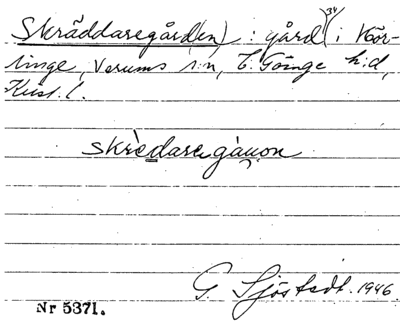 Skräddaregård(en) : gård 34) i Kör-
linge, Verums s:n, V. Göinge h:d,
Krist. l.
skrèdaregàuon
G. Sjöstedt. 1946.
Nr 5371.